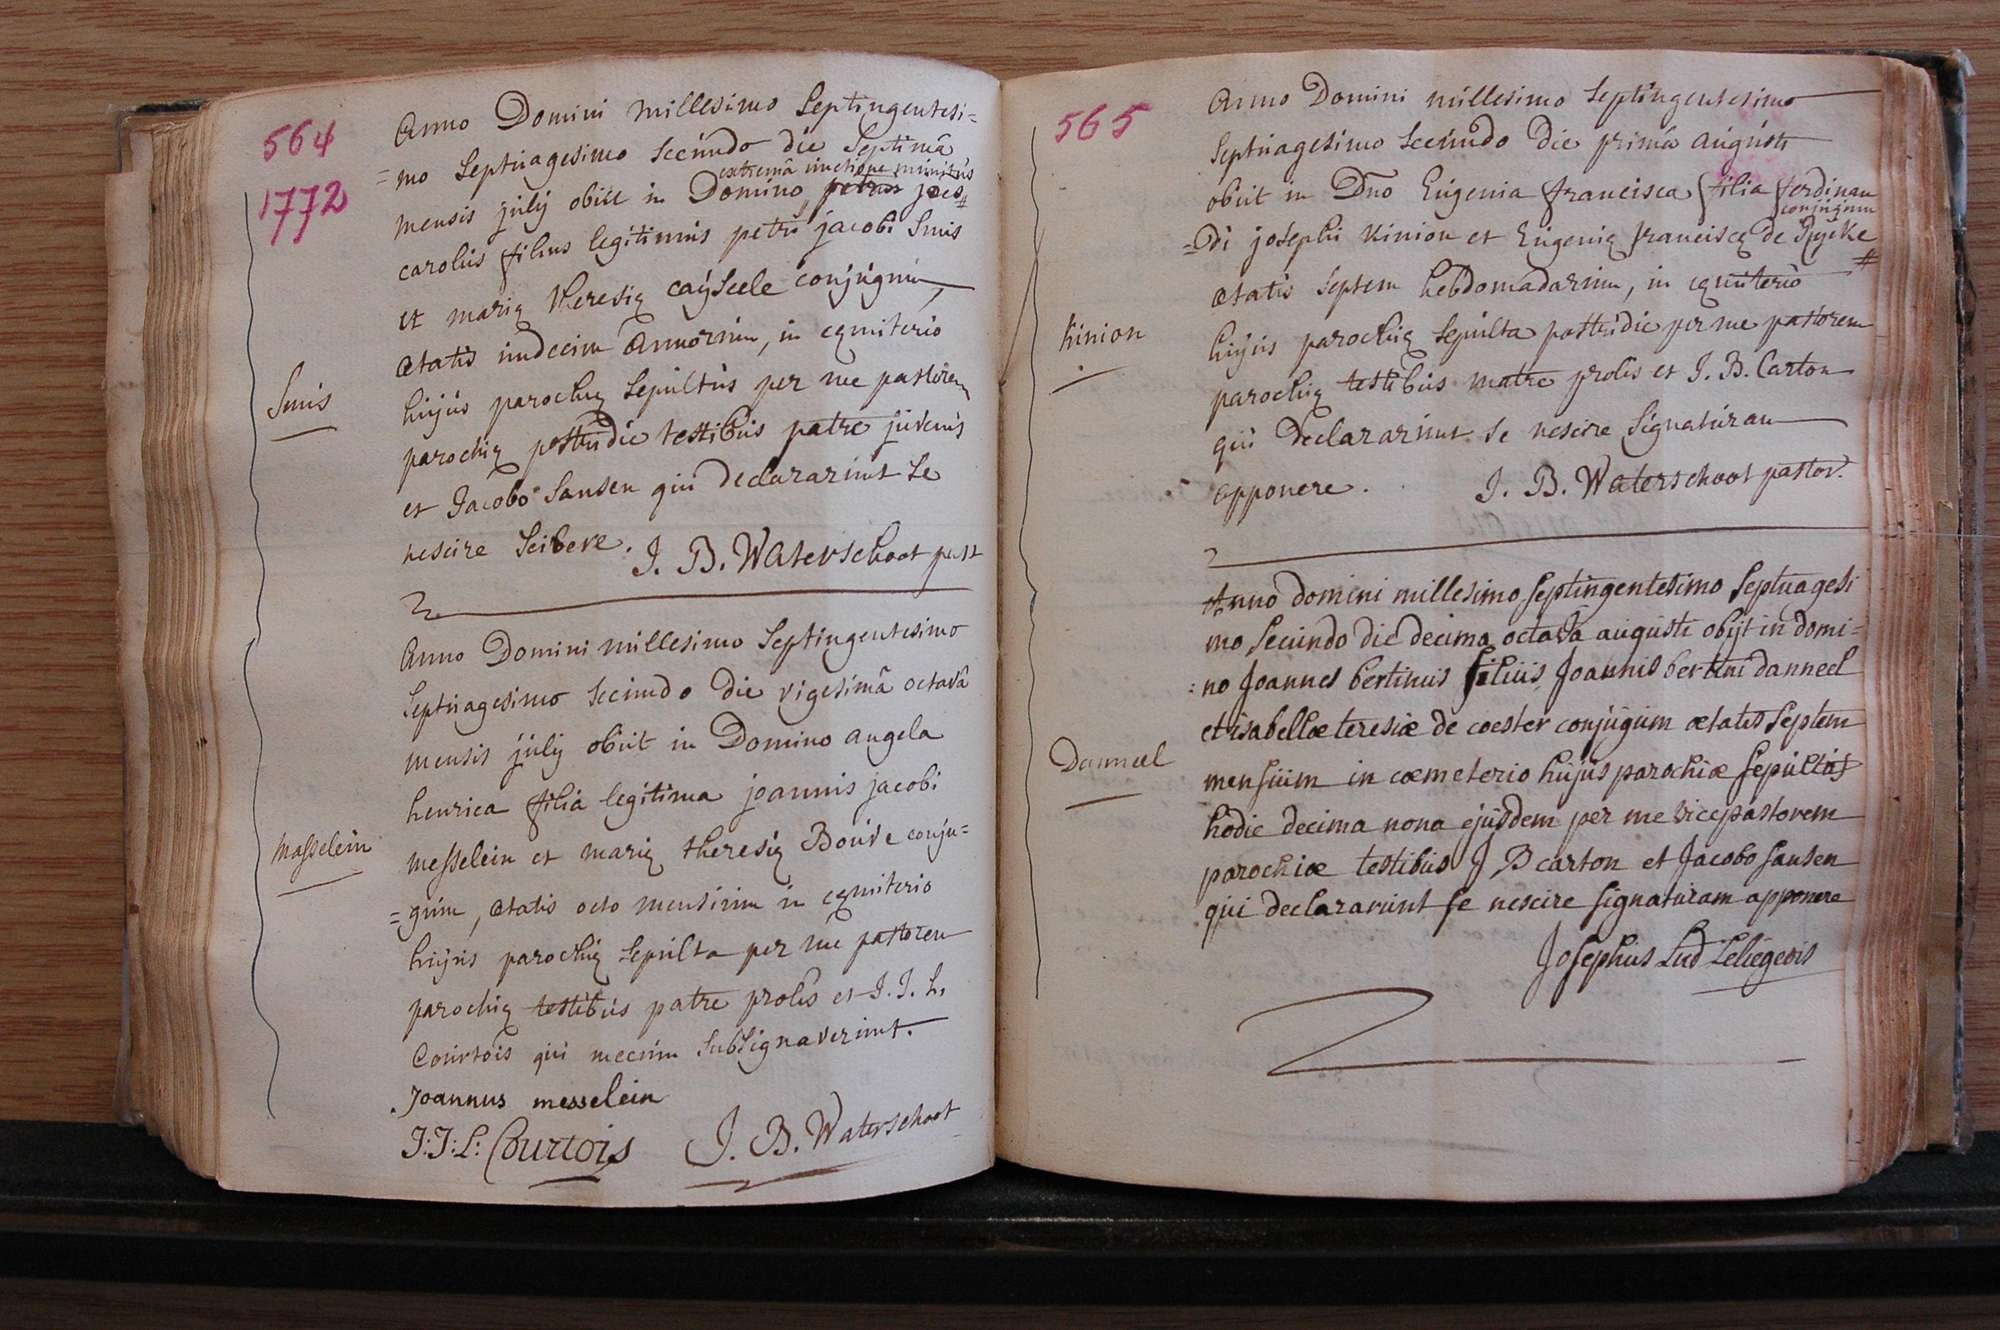 564
1772
Anno Domini millesimo septingentesi=
=mo septuagesimo secundo die septimâ
extremâ unctione munitus
mensis july obiit in Domino petrus jaco=
carolus filius legitimus petri jacobi Smis
et marię theresię cayseele conjugum,
ætatis undecim annorum, in cęmiterio
Smis
hujus parochię sepultus per me pastorem
parochię postridie testibus patre juvenis
et Jacobo Sansen qui declararunt se
nescire scibere.
J. B. Waterschoot past
Anno Domini millesimo septingentesimo
septuagesimo secundo die vigesimâ octavâ
mensis july obiit in Domino angela
henrica filia legitima joannis jacobi
Masselein
messelein et marię theresię Bouve conju=
=gum, ætatis octo mensium in cęmiterio
hujus parochię sepulta per me pastorem
parochię testibus patre prolis et J. J. L.
Courtois qui mecum subsignaverunt.
Joannus messelein
J: J: L: Courtois
J. B. Waterschoot
565
Anno Domini millesimo septingentesimo
septuagesimo secundo die primâ augusti
obiit in Dno Eugenia francisca filia ferdinan
conjugum
=di josephi Kinion et Eugenię francisce de Rycke
ætatis septem hebdomadarum, in cęmiterio
Kinion
hujus parochię sepulta postridie per me pastorem
parochię testibus matre prolis et J. B. Carton
qui declararunt se nescire signaturam
apponere.
J. B. Waterschoot pastor.
Anno domini millesimo septingentesimo septuagesi
mo secundo die decima octava augusti obijt in domi=
=no Joannes bertinus filius Joannis bertini danneel
et isabellæ teresiæ de coester conjugum ætatis septem
Danneel
mensium in cæmeterio hujus parochiæ sepultus
hodie decima nona ejusdem per me vicepastorem
parochiæ testibus J B carton et Jacobo sansen
qui declararunt se nescire signaturam apponere
Josephus Lud Leliegeois